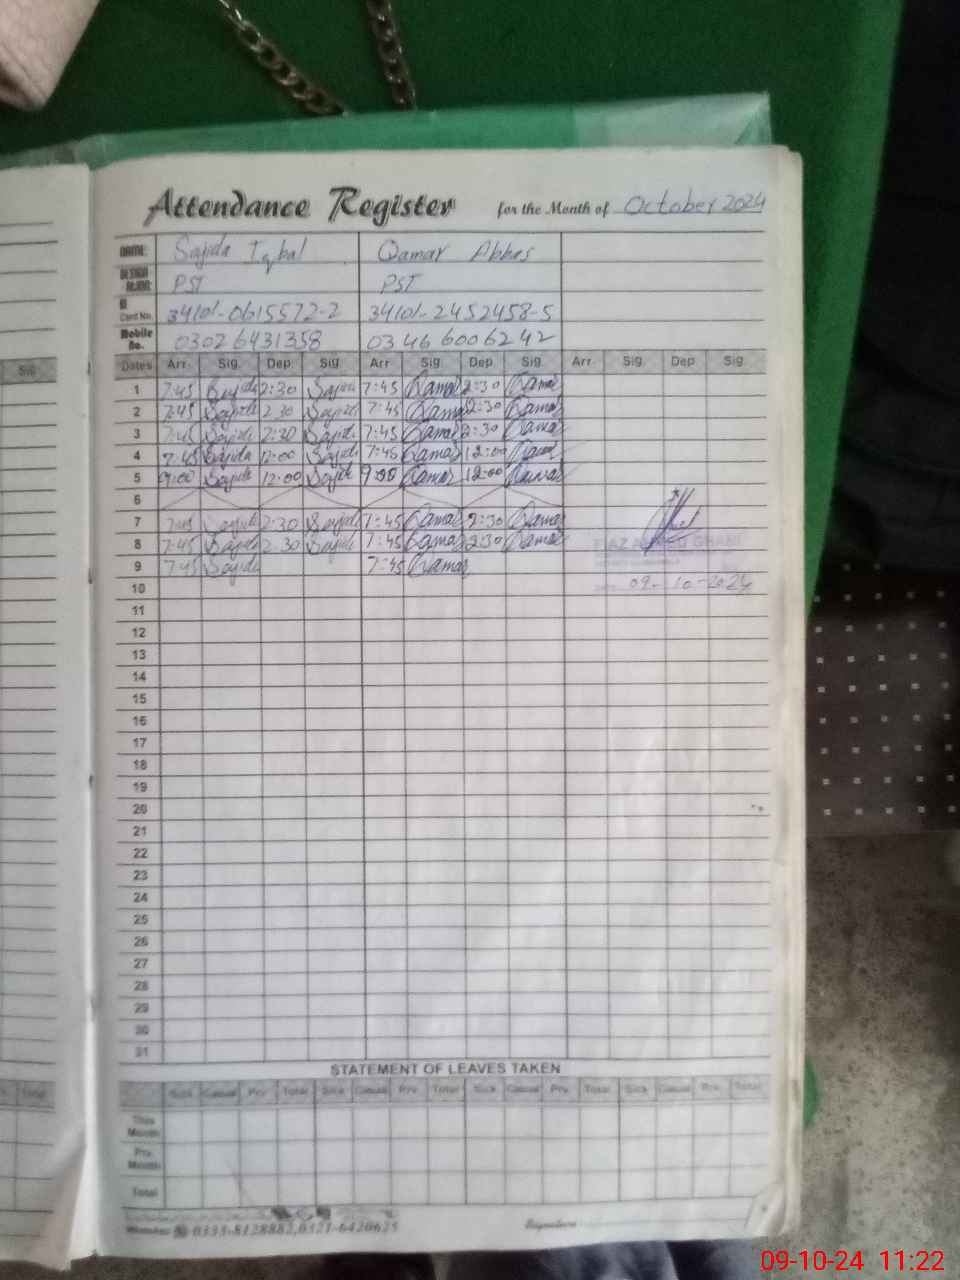 Sig
Attendance Register for the Month of October 2024
NAME: Sajida Iqbal Qamar Abbas
DESIGNATION: PST PST
ID Card No. 34101-0615572-2 34101-2452458-5
Mobile No. 03026431358 03466006242
Dates Arr. Sig. Dep. Sig. Arr. Sig. Dep. Sig. Arr. Sig. Dep. Sig.
1 7:45 Sajida 2:30 Sajida 7:45 Qamar 2:30 Qamar
2 7:45 Sajida 2:30 Sajida 7:45 Qamar 2:30 Qamar
3 7:45 Sajida 2:30 Sajida 7:45 Qamar 2:30 Qamar
4 7:45 Sajida 12:00 Sajida 7:45 Qamar 12:00 Qamar
5 9:00 Sajida 12:00 Sajida 9:00 Qamar 12:00 Qamar
6
7 7:45 Sajida 2:30 Sajida 7:45 Qamar 2:30 Qamar
8 7:45 Sajida 2:30 Sajida 7:45 Qamar 2:30 Qamar
9 7:45 Sajida 7:45 Qamar
10 09-10-2024
11
12
13
14
15
16
17
18
19
20
21
22
23
24
25
26
27
28
29
30
31
STATEMENT OF LEAVES TAKEN
Sick Casual Prv. Total Sick Casual Prv. Total Sick Casual Prv. Total Sick Casual Prv. Total
This Month
Prv. Month
Total
0333-8128882,0321-6420625 Signature
09-10-24 11:22